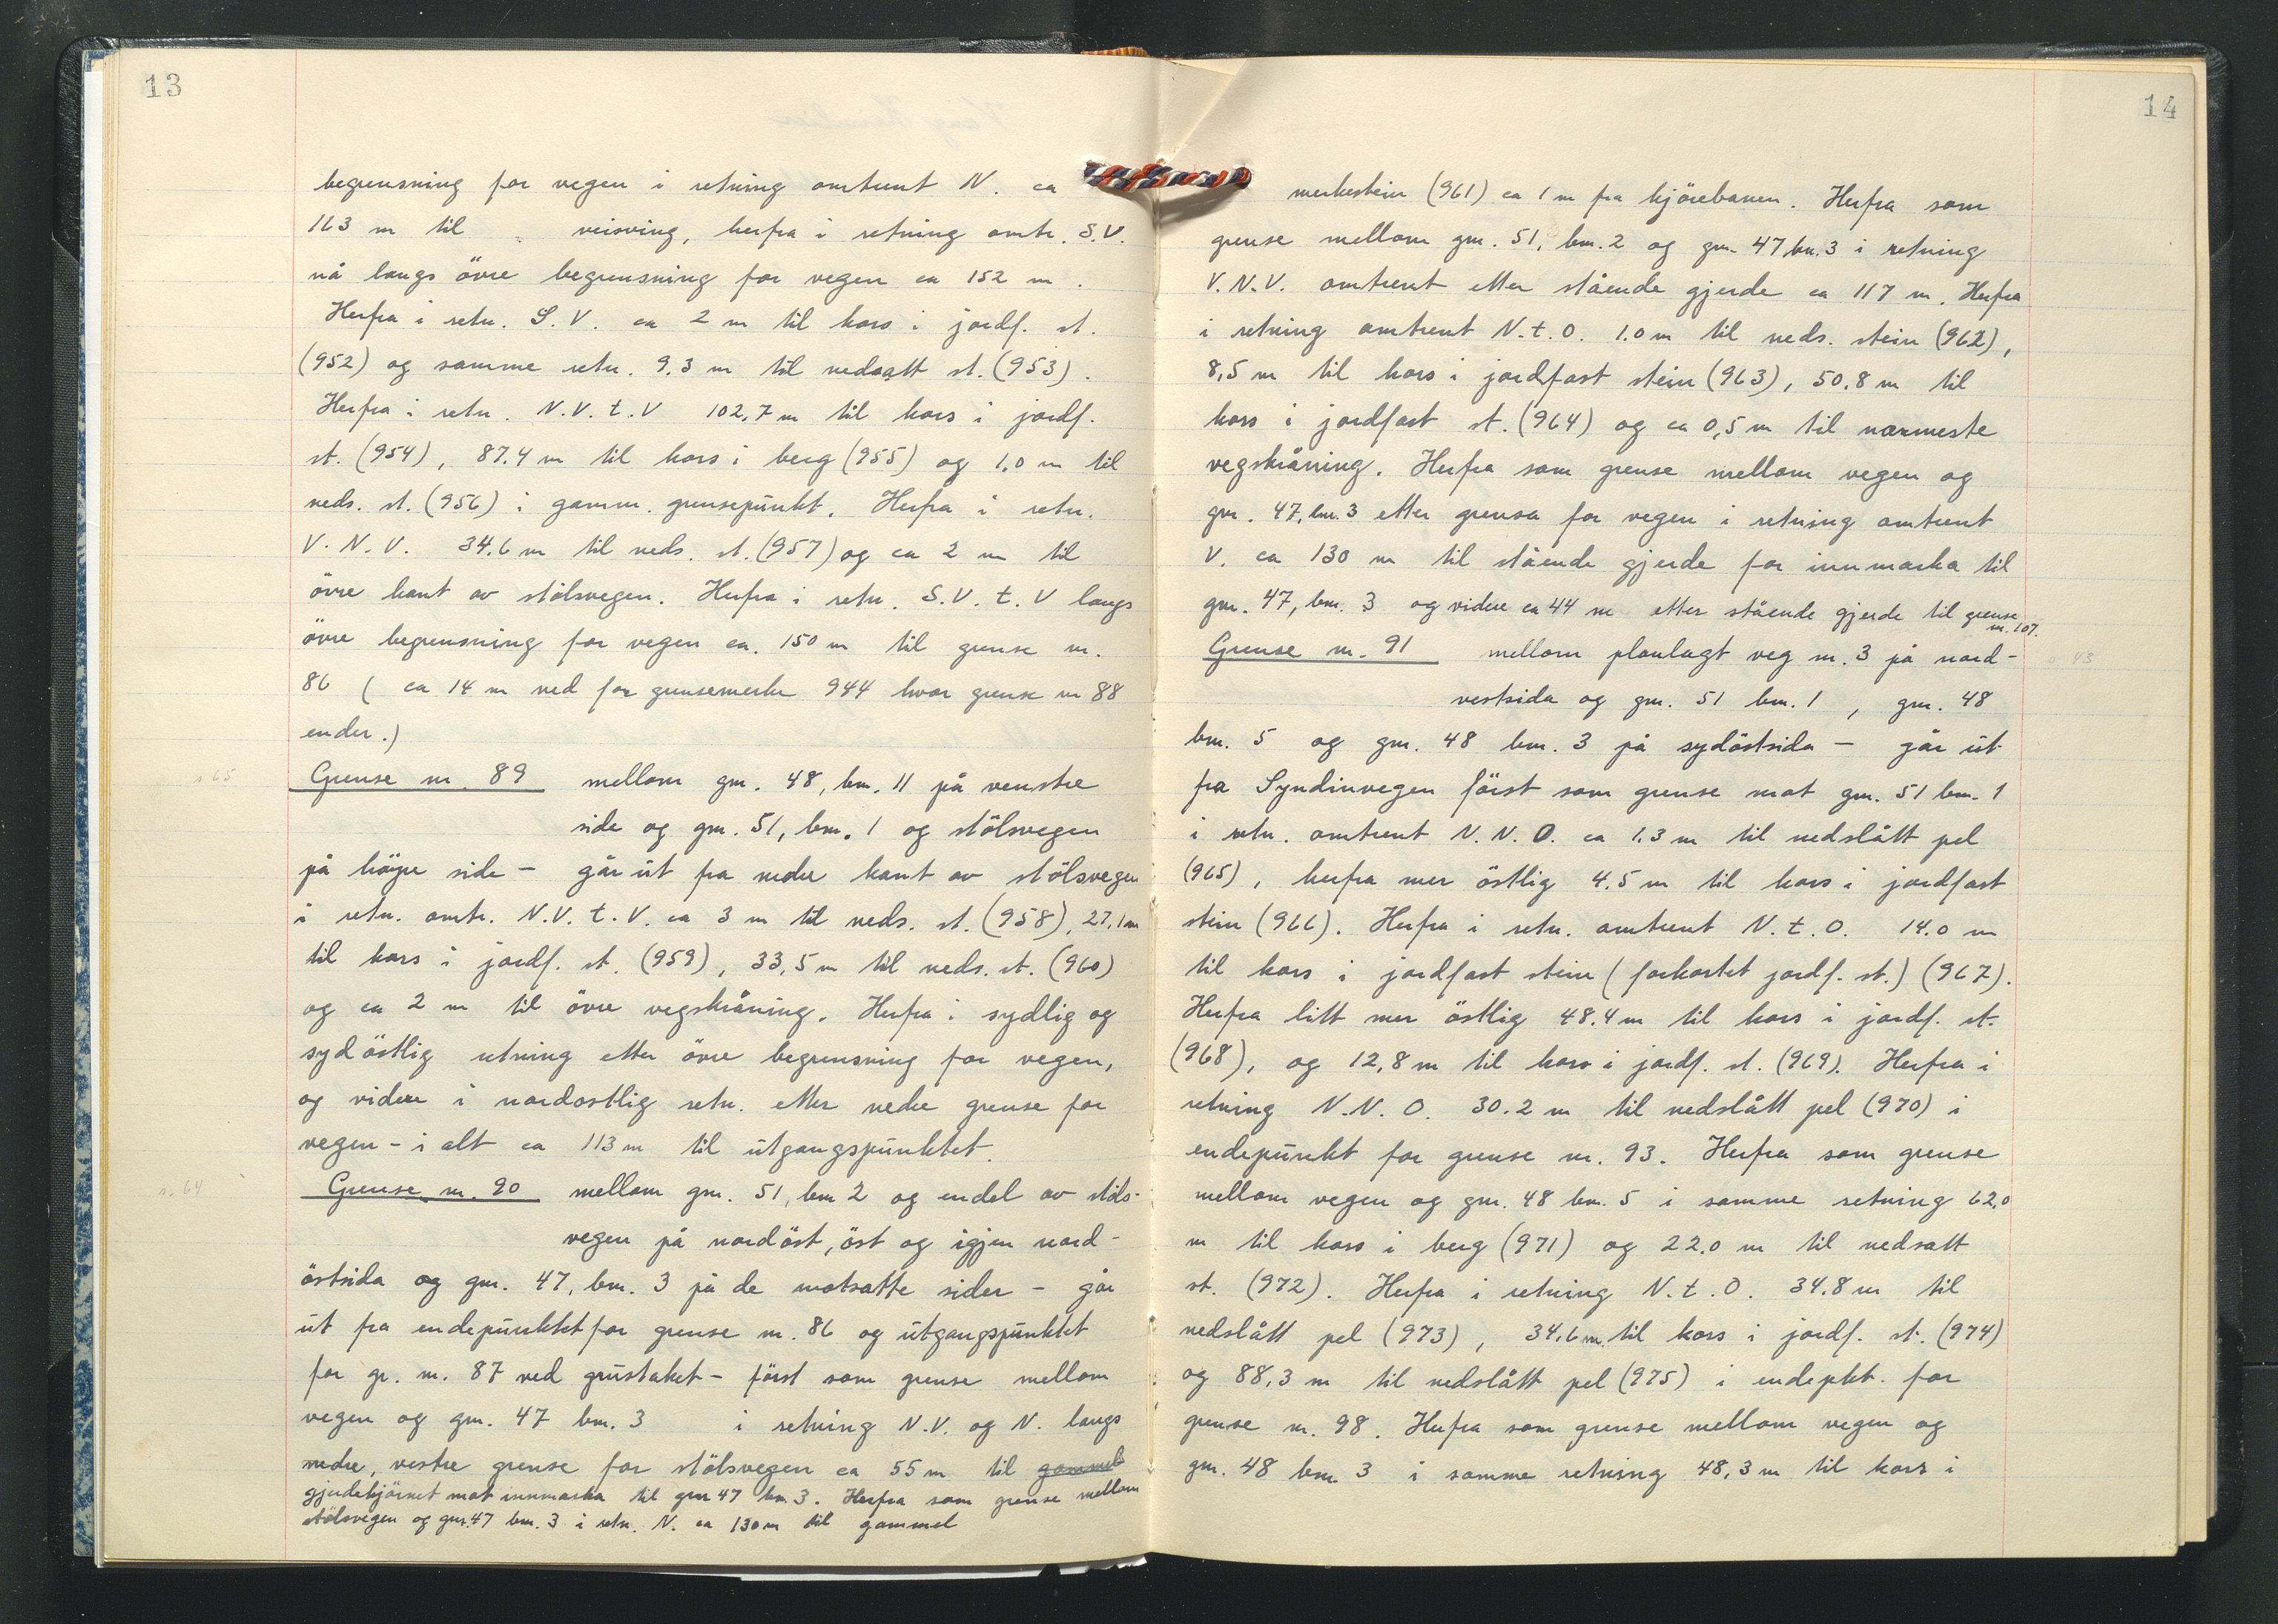 13
begrensning for vegen i retning omtrent N. ca
163 m til veisving, herfra i retning omtr. S.V.
nå langs övre begrensning for vegen ca 152 m.
Herfra i retn. S.V. ca 2 m til kors i jordf. st.
(952) og samme retn. 9.3 m til nedsatt st. (953).
Herfra i retn. N.V.t.V 102,7 m til kors i jordf.
st. (954), 87.4 m til kors i berg (955) og 1,0 m til
neds. st. (956) i gamm. grensepunkt. Herfra i retn.
V.N.V. 34.6 m til neds. st. (957) og ca 2 m til
övre kant av stölsvegen. Herfra i retn. S.V.t.V langs
övre begrensning for vegen ca. 150 m til grense nr.
86 (ca 14 m ned for grensemerke 944 hvor grense nr 88
ender.)
s 65
Grense nr. 89 mellom gnr. 48, bnr. 11 på venstre
side og gnr. 51, bnr. 1 og stölsvegen
på höyre side – går ut fra nedre kant av stölsvegen
i retn. omtr. N.V.t.V. ca 3 m til neds. st. (958), 27,1 m
til kors i jordf. st. (959), 33,5 m til neds. st. (960)
og ca 2 m til övre vegskråning. Herfra i sydlig og
sydöstlig retning etter övre begrensning for vegen,
og videre i nordostlig retn. etter nedre grense for
vegen – i alt ca 113 m til utgangspunktet.
s. 64
Grense nr. 90 mellom gnr. 51, bnr 2 og endel av stöls-
vegen på nordöst, öst og igjen nord-
östsida og gnr. 47, bnr. 3 på de motsatte sider – går
ut fra endepunktet for grense nr. 86 og utgangspunktet
for gr. nr. 87 ved grustaket – först som grense mellom
vegen og gnr. 47 bnr. 3 i retning N.V. og N. langs
nedre, vestre grense for stölsvegen ca 55 m til gammel
gjerdehjörnet mot innmarka til gnr 47 bnr 3. Herfra som grense mellom
stölsvegen og gnr. 47 bnr. 3 i retn. N. ca 130 m til gammel
14
merkestein (961) ca 1 m fra kjörebanen. Herfra som
grense mellom gnr. 51, bnr. 2 og gnr. 47 bnr. 3 i retning
V.N.V. omtrent etter stående gjerde ca 117 m. Herfra
i retning omtrent N.t.O. 1.0 m til neds. stein (962),
8,5 m til kors i jordfast stein (963), 50.8 m til
kors i jordfast st. (964) og ca 0,5 m til nærmeste
vegskråning. Herfra som grense mellom vegen og
gnr. 47, bnr. 3 etter grensa for vegen i retning omtrent
V. ca 130 m til stående gjerde for innmarka til
gnr. 47, bnr. 3 og videre ca 44 m etter stående gjerde til grense
nr. 107.
Grense nr. 91 mellom planlagt veg nr. 3 på nord-
43
vestsida og gnr. 51 bnr. 1, gnr. 48
bnr. 5 og gnr. 48 bnr. 3 på sydöstsida – går ut
fra Syndinvegen först som grense mot gnr. 51 bnr. 1
i retn. omtrent N.N.O. ca 1.3 m til nedslått pel
(965), herfra mer östlig 4.5 m til kors i jordfast
stein (966). Herfra i retn. omtrent N.t.O. 14.0 m
til kors i jordfast stein (forkortet jordf. st.) (967).
Herfra litt mer östlig 48.4 m til kors i jordf. st.
(968), og 12,8 m til kors i jordf. st. (969). Herfra i
retning N.N.O. 30.2 m til nedslått pel (970) i
endepunkt for grense nr. 93. Herfra som grense
mellom vegen og gnr. 48 bnr. 5 i samme retning 62,0
m til kors i berg (971) og 22.0 m til nedsatt
st. (972). Herfra i retning N.t.O. 34.8 m til
nedslått pel (973), 34,6 m. til kors i jordf. st. (974)
og 88,3 m til nedslått pel (975) i endepkt. for
grense nr. 98. Herfra som grense mellom vegen og
gnr. 48 bnr 3 i samme retning 48,3 m til kors i